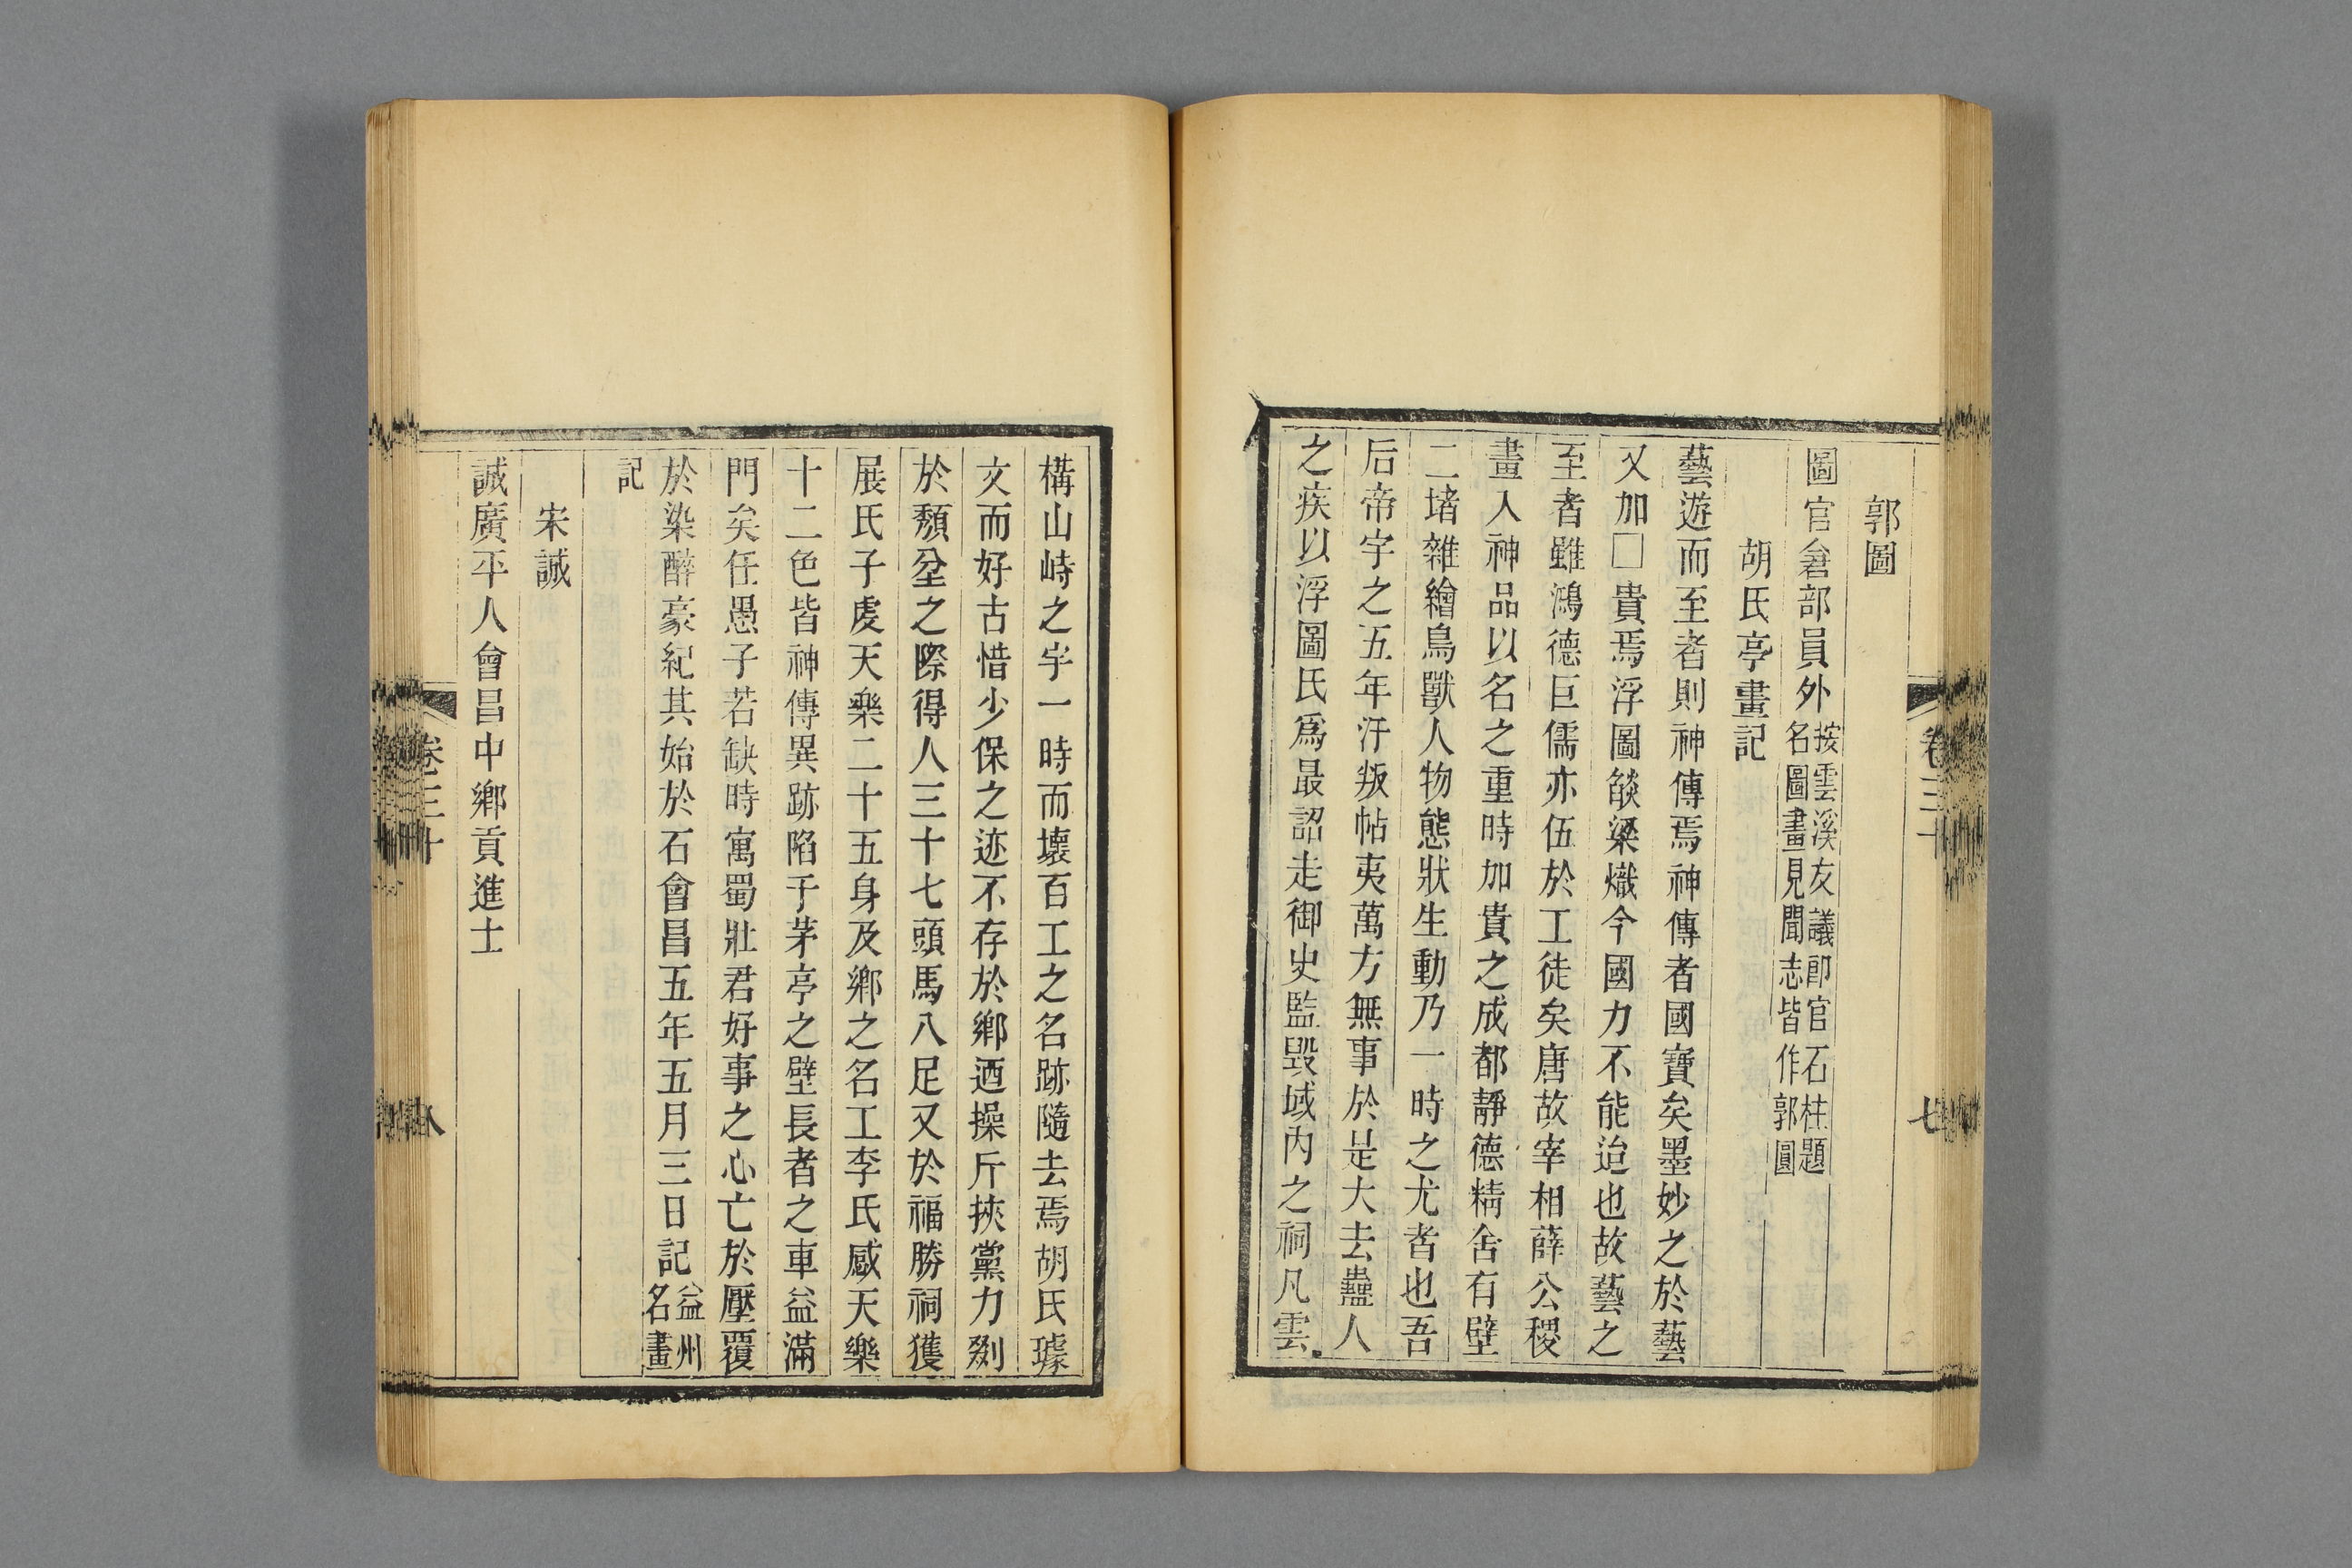 郭圖
圖官倉部員外按雲溪友議郎官石柱題名圖畫見聞志皆作郭圓
胡氏亭畫記
藝遊而至者則神傳焉神傳者國寶矣墨妙之於藝
又加□貴焉浮圖燄梁熾今國力不能迨也故藝之
至者雖鴻德巨儒亦伍於工徒矣唐故宰相薛公稷
畫入神品以名之重時加貴之成都靜德精舍有壁
二堵雜繪鳥獸人物態狀生動乃一時之尤者也吾
后帝宇之五年汙叛帖夷萬方無事於是大去蠱人
之疾以浮圖氏爲最詔走御史監毀域內之祠凡雲
卷三十
七
構山峙之宇一時而壞百工之名跡隨去焉胡氏璩
文而好古惜少保之迹不存於鄉迺操斤挾黨力剟
於頹坌之際得人三十七頭馬八足又於福勝祠獲
展氏子虔天樂二十五身及鄉之名工李氏感天樂
十二色皆神傳異跡陷于茅亭之壁長者之車益滿
門矣任愚子若缺時寓蜀壯君好事之心亡於壓覆
於染醉豪紀其始於石會昌五年五月三日記益州名畫
記
宋誠
誠廣平人會昌中鄉貢進士
卷三十
八